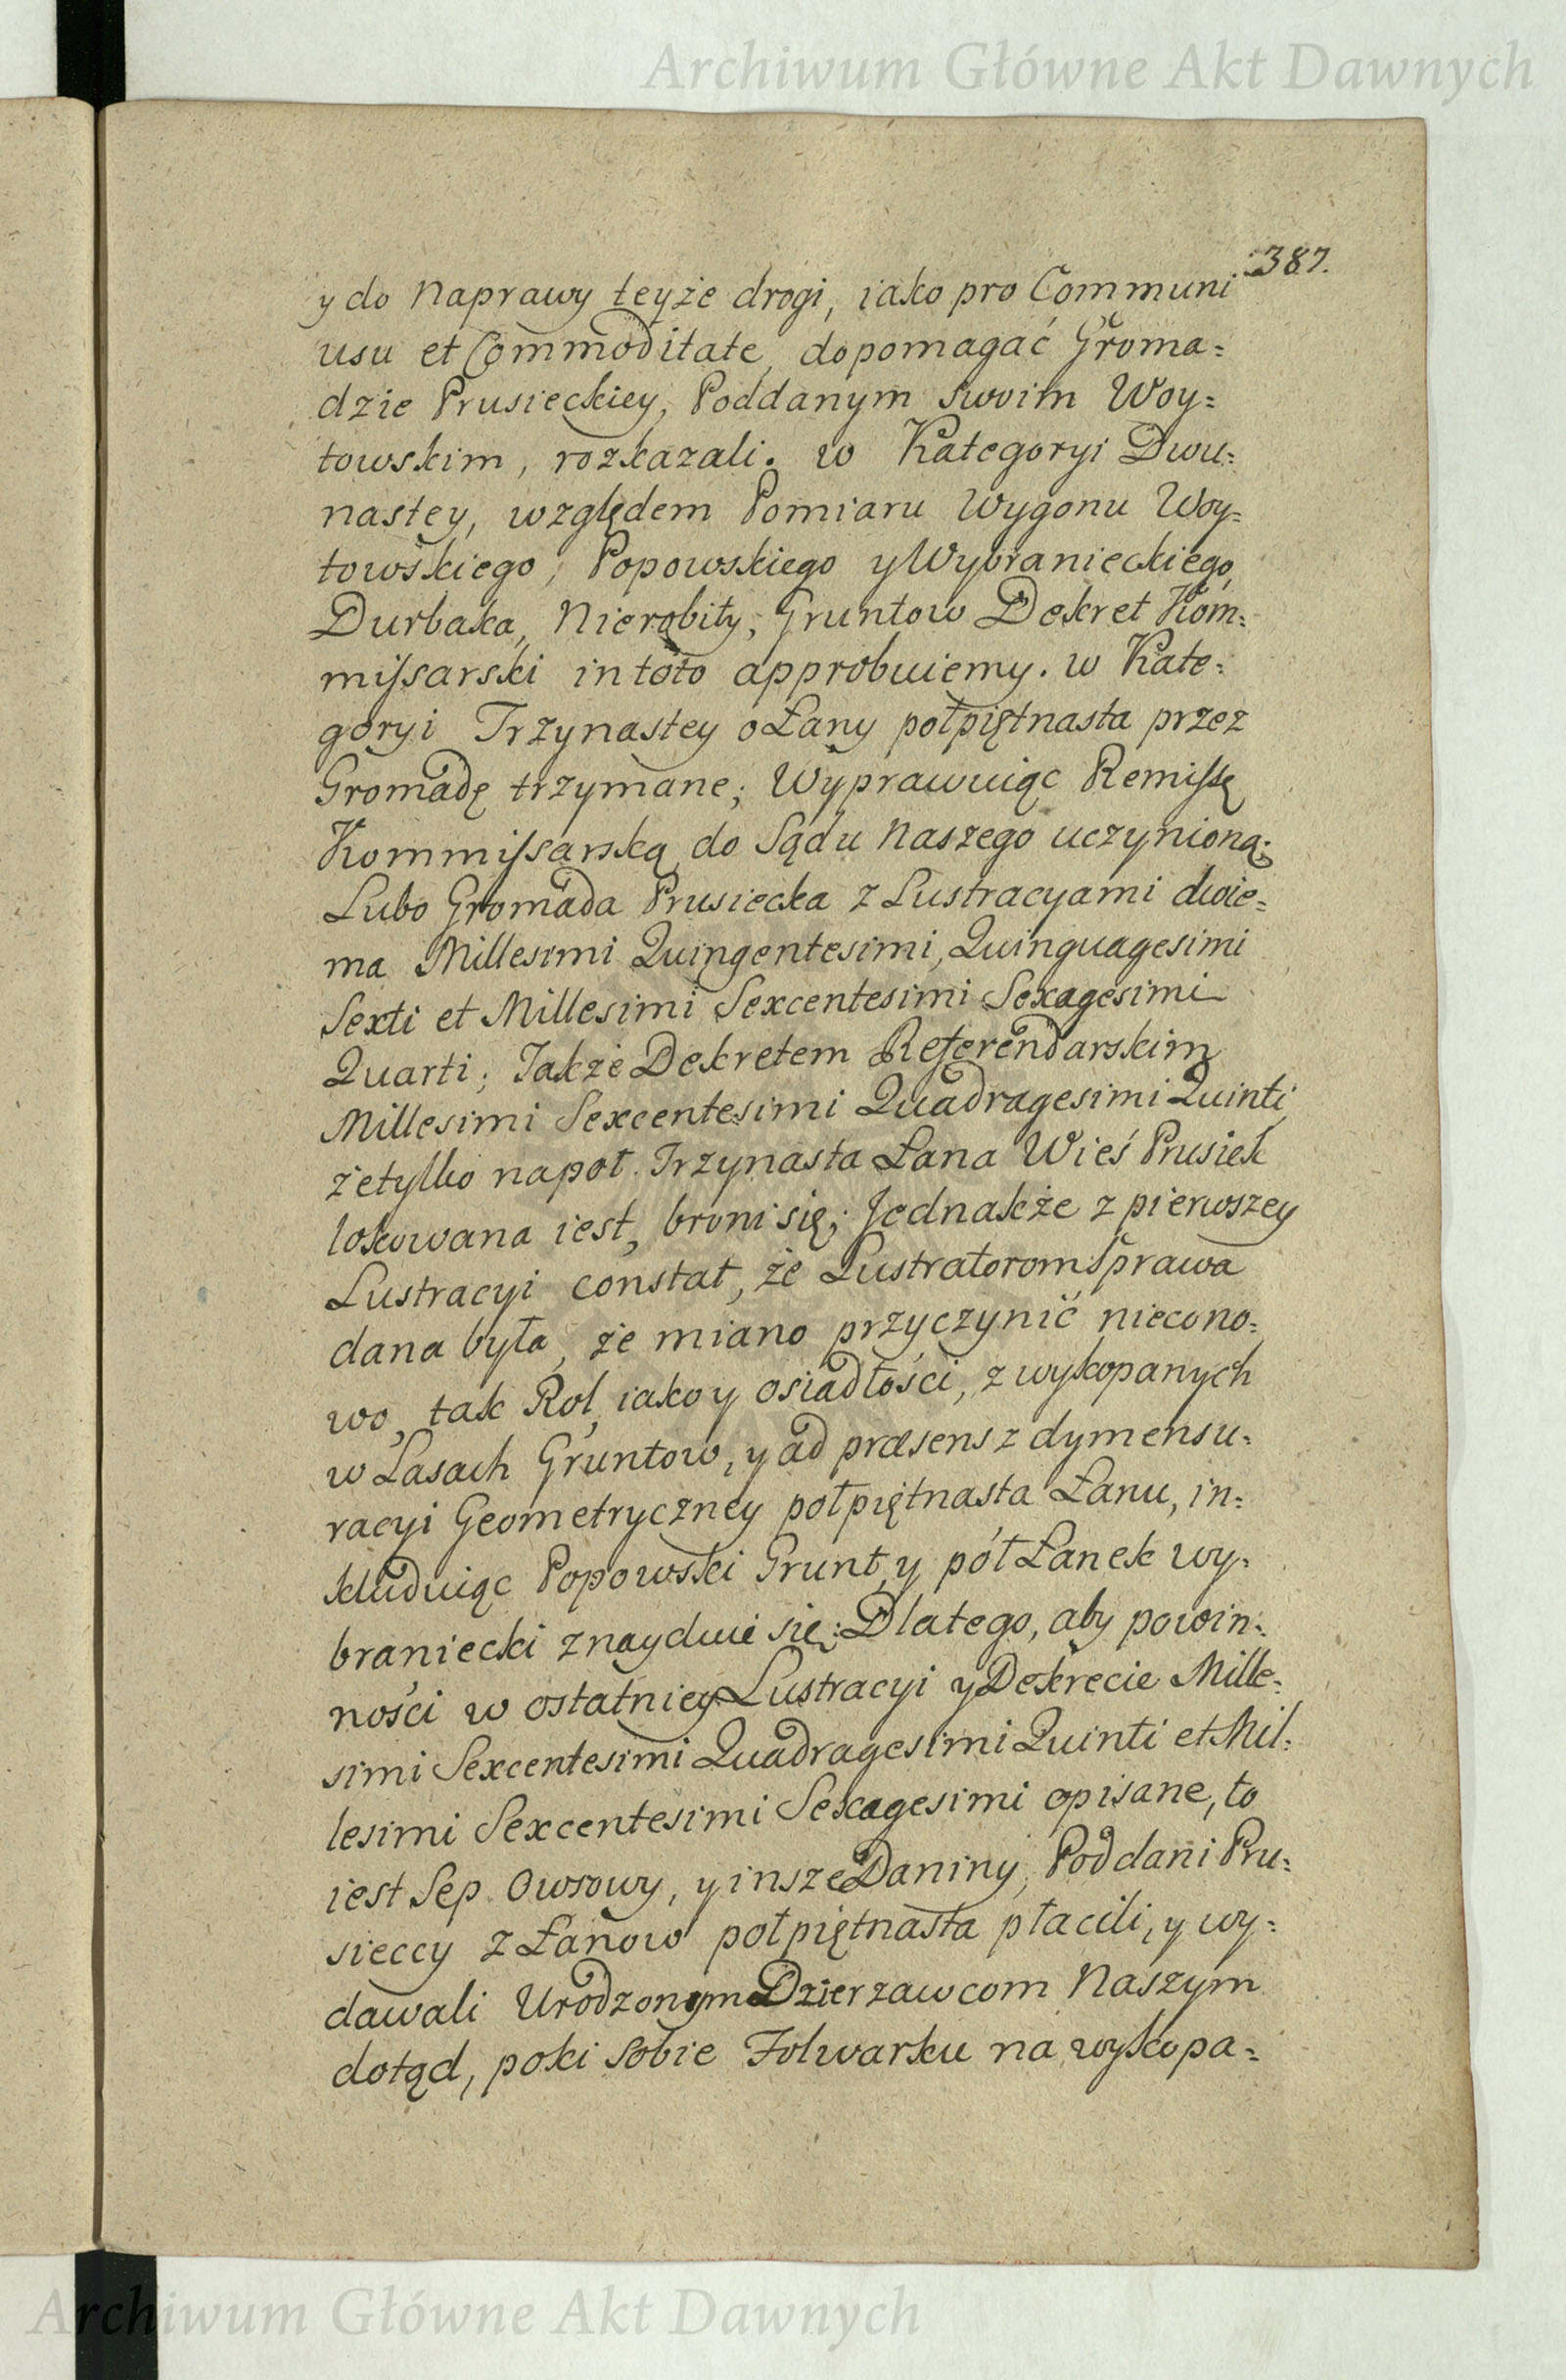 Archiwum Główne Akt Dawnych
387.
y do Naprawy teyże drogi, iako pro Communi
usu et Commoditate, dopomagać Groma=
dzie Prusieckiey, Poddanym swoim Woy=
towskim, rozkazali. w Kategoryi Dwu=
nastey, względem Pomiaru Wygonu Woy=
towskiego, Popowskiego y Wybranieckiego,
Durbaka, Nierobiły, Gruntow Dekret Kom=
missarski in toto approbuiemy. w Kate=
goryi Trzynastey o Łany połpiętnasta przez
Gromadę trzymane; Wyprawuiąc Remissę
Kommissarską do Sądu Naszego uczynioną;
Lubo Gromada Prusiecka z Lustracyami dwie=
ma Millesimi Quingentesimi, Quinguagesimi
Sexti et Millesimi Sexcentesimi Sexagesimi
Quarti; Także Dekretem Referendarskim
Millesimi Sexcentesimi Quadragesimi Quinti
że tylko napoł Trzynasta Łana Wieś Prusiek
lokowana iest, broni się; Jednakże z pierwszey
Lustracyi constat, że Lustratorom sprawa
dana była, że miano przyczynić nieco no=
wo, tak Rol, iako y osiadłości, z wykopanych
w Lasach Gruntow, y ad præsens z dymensu=
racyi Geometryczney połpiętnasta Łanu, in=
kluduiąc Popowski Grunt, y pół Łanek wy=
braniecki znayduie się: Dlatego, aby powin=
ności w ostatniey Lustracyi y Dekrecie Mille=
simi Sexcentesimi Quadragesimi Quinti et Mil=
lesimi Sexcentesimi Sexagesimi opisane, to
iest Sep Owsowy, y insze Daniny, Poddani Pru=
sieccy z Łanow połpiętnasta płacili, y wy=
dawali Urodzonym Dzierzawcom Naszym
dotąd, poki sobie Folwarku na wykopa=
Archiwum Główne Akt Dawnych